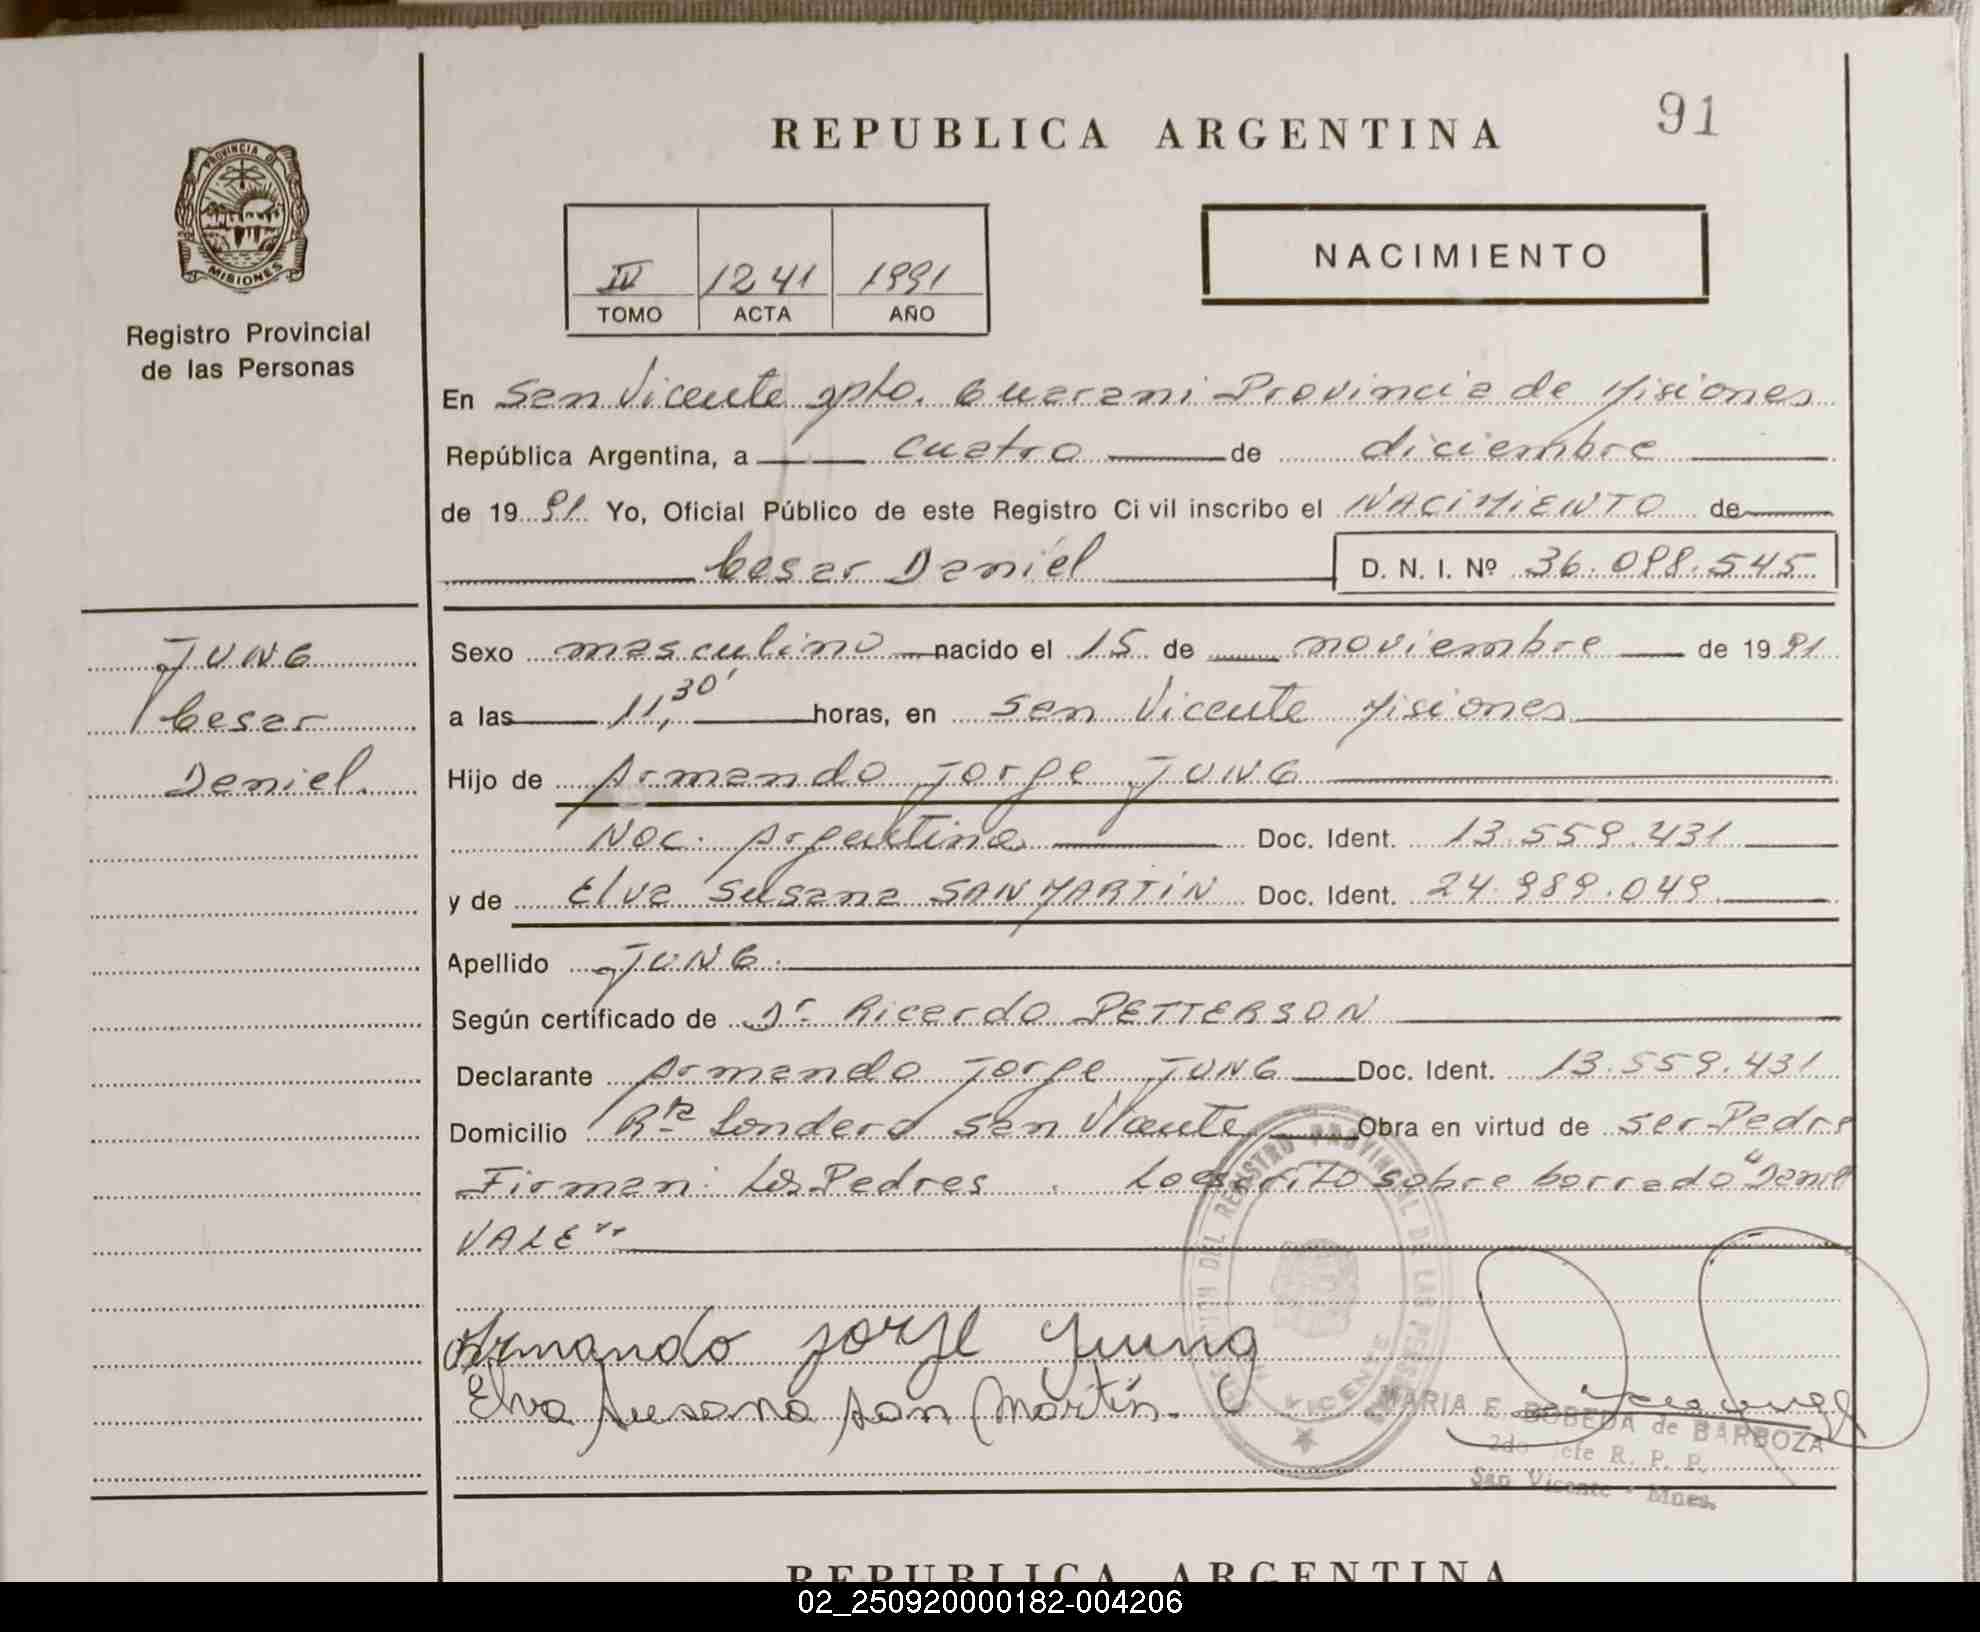 91
REPUBLICA ARGENTINA
PROVINCIA DE
MISIONES
Registro Provincial
de las Personas
IV 1241 1991
TOMO ACTA AÑO
NACIMIENTO
En San Vicente Dpto. Guarani Provincia de Misiones
República Argentina, a cuatro de diciembre
de 19 91 Yo, Oficial Público de este Registro Civil inscribo el NACIMIENTO de
Cesar Daniel D. N. I. Nº 36.098.545
JUNG
Cesar
Daniel.
Sexo masculino nacido el 15 de noviembre de 19 91
a las 11,30' horas, en San Vicente Misiones
Hijo de Armando Jorge JUNG
Nac. Argentina Doc. Ident. 13.559.431
y de Elva Susana SAN MARTIN Doc. Ident. 24.989.049
Apellido JUNG.
Según certificado de Dr. Ricardo PETTERSON
Declarante Armando Jorge JUNG Doc. Ident. 13.559.431
Domicilio Rta Londero San Vicente Obra en virtud de ser Padre
Firman: Los Padres . Lo escrito sobre borrado "Daniel
VALE"
Armando Jorge Jung
Elva Susana San Martín.
DEL REGISTRO PROVINCIAL DE LAS PERSONAS
SAN VICENTE
MARIA E. BOBEDA de BARBOZA
2do Jefe R. P. P.
San Vicente - Mnes.
REPUBLICA ARGENTINA
02_250920000182-004206